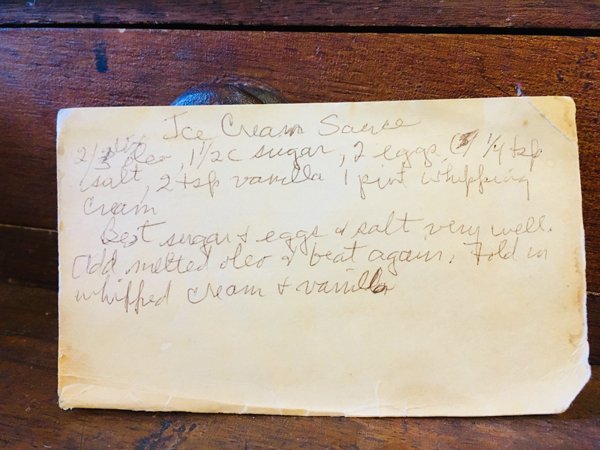 Ice Cream Sauce
2/3 oleo, 1 1/2 c sugar, 2 eggs, 1/4 tsp
salt, 2 tsp vanilla 1 pint whipping
cream
Beat sugar & eggs & salt very well.
Add melted oleo & beat again. Fold in
whipped cream & vanilla